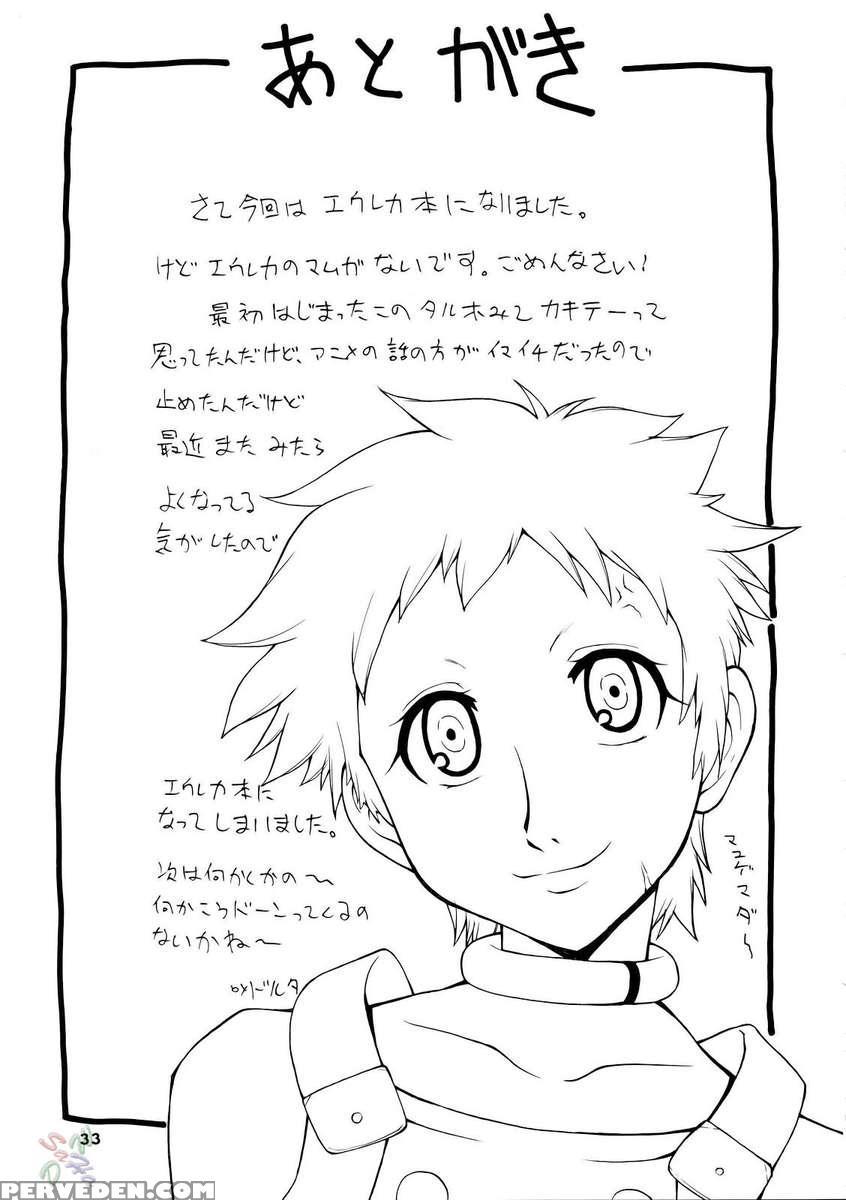 あとがき
さて今回は エウレカ本になりました。
けど エウレカのマムが ないです。ごめんなさい!
最初 はじまったこの タルホみて カキテーって
思ってたんだけど、アニメの 話の方が イマイチだったので
止めたんだけど
最近 また みたら
よくなってる
気がしたので
エウレカ本に
なって しまいました。
次は何かくかの〜
何かこうドーンってくるの
ないかね〜
マユゲマダ〜
33
PERVEDEN.COM